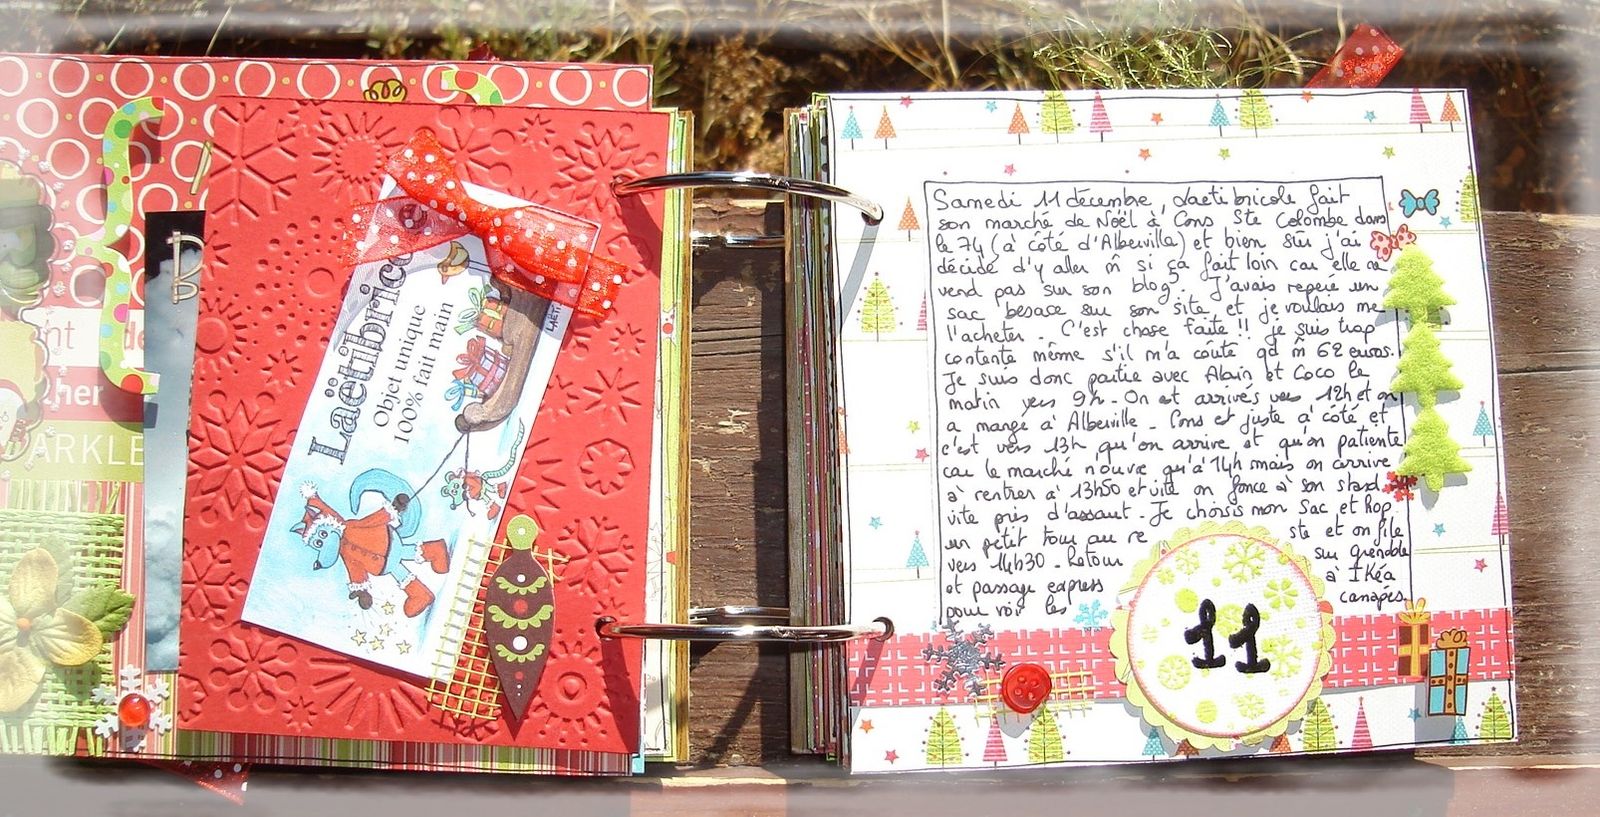 nt de
ther
ARKLE
B
Laëtibricole
Objet unique
100% fait main
LAËTI
Samedi 11 décembre, Laetibricole fait
son marché de Noël à Cons Ste Colombe dans
le 74 (à côté d'Albertville) et bien sûr j'ai
décidé d'y aller m̂ si ça fait loin car elle ne
vend pas sur son blog. J'avais repéré un
sac besace sur son site et je voulais me
l'acheter. C'est chose faite!! je suis trop
contente même s'il m'a coûté qd m̂ 62 euros.
Je suis donc partie avec Alain et Coco le
matin vers 9h. On est arrivés vers 12h et on
a mangé à Albeville. Cons est juste à côté et
c'est vers 13h qu'on arrive et qu'on patiente
car le marché n'ouvre qu'à 14h mais on arrive
à rentrer à 13h50 et vite on fonce à son stand
vite pris d'assaut. Je choisis mon sac et hop
un petit tour au re ste et on file
vers 14h30. Retour sur Grenoble
et passage express à IKéa
pour voir les canapés.
11